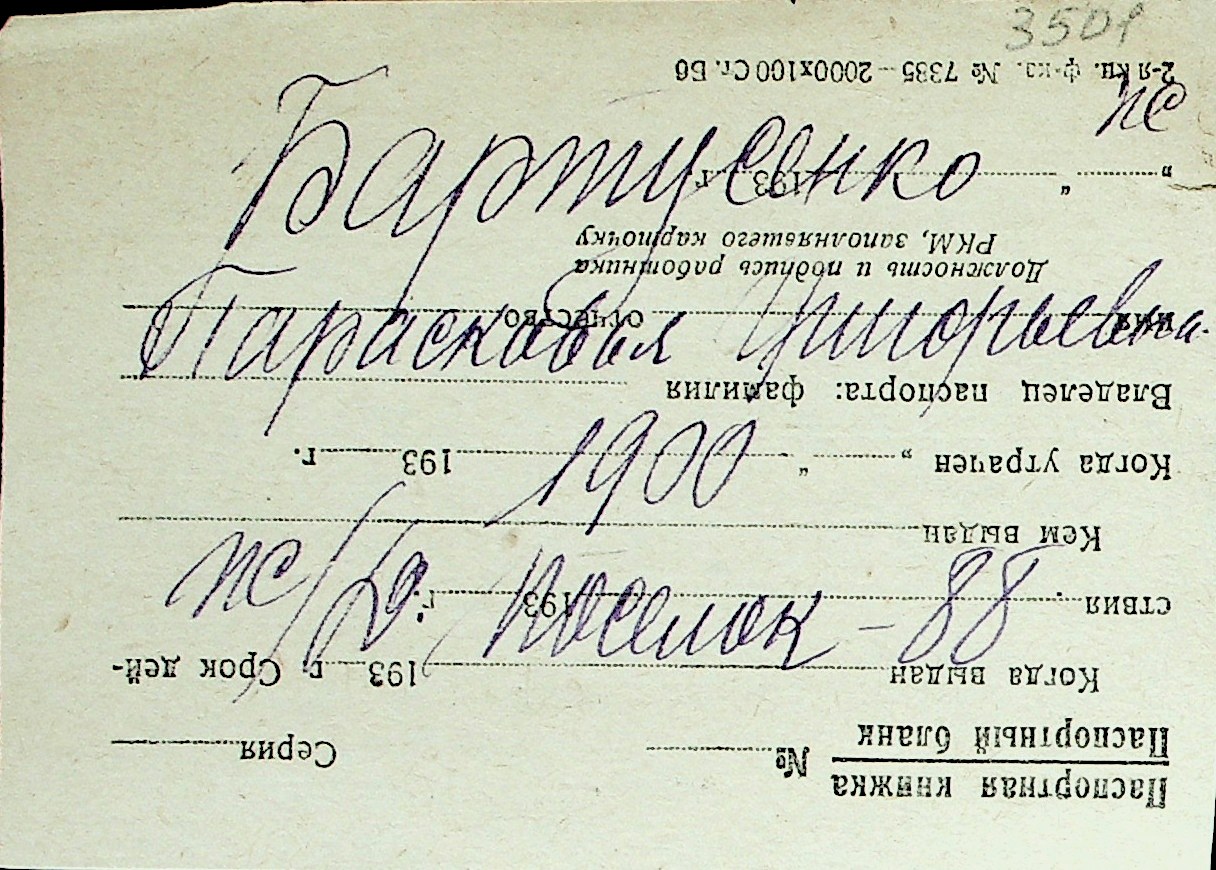 3501
пс
Бартусенко
Парасковья Григорьевна
1900
пс/ Поселок - 88
Паспортная книжка
Паспортный бланк
№ Серия
Когда выдан 193 г. Срок дей-
ствия 193 г.
Кем выдан
Когда утрачен „ “ 193 г.
Владелец паспорта: фамилия
имя отчество
Должность и подпись работника
РКМ, заполнявшего карточку
„ “ 193 г.
2-я кц. ф-ка. № 7385 — 2000х100 Ст. Бб